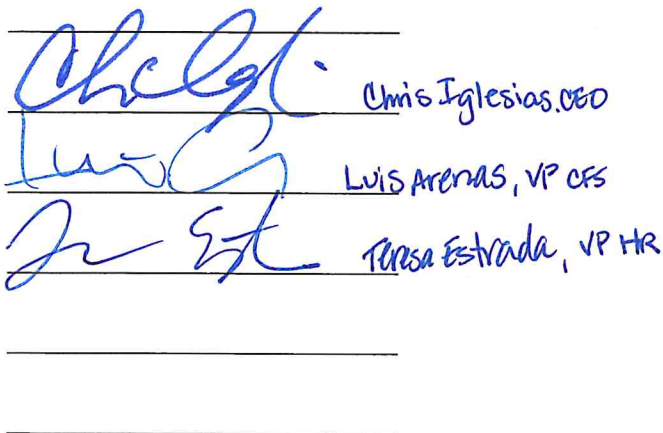 Chris Iglesias, CEO
Luis Arenas, VP CFS
Teresa Estrada, VP HR